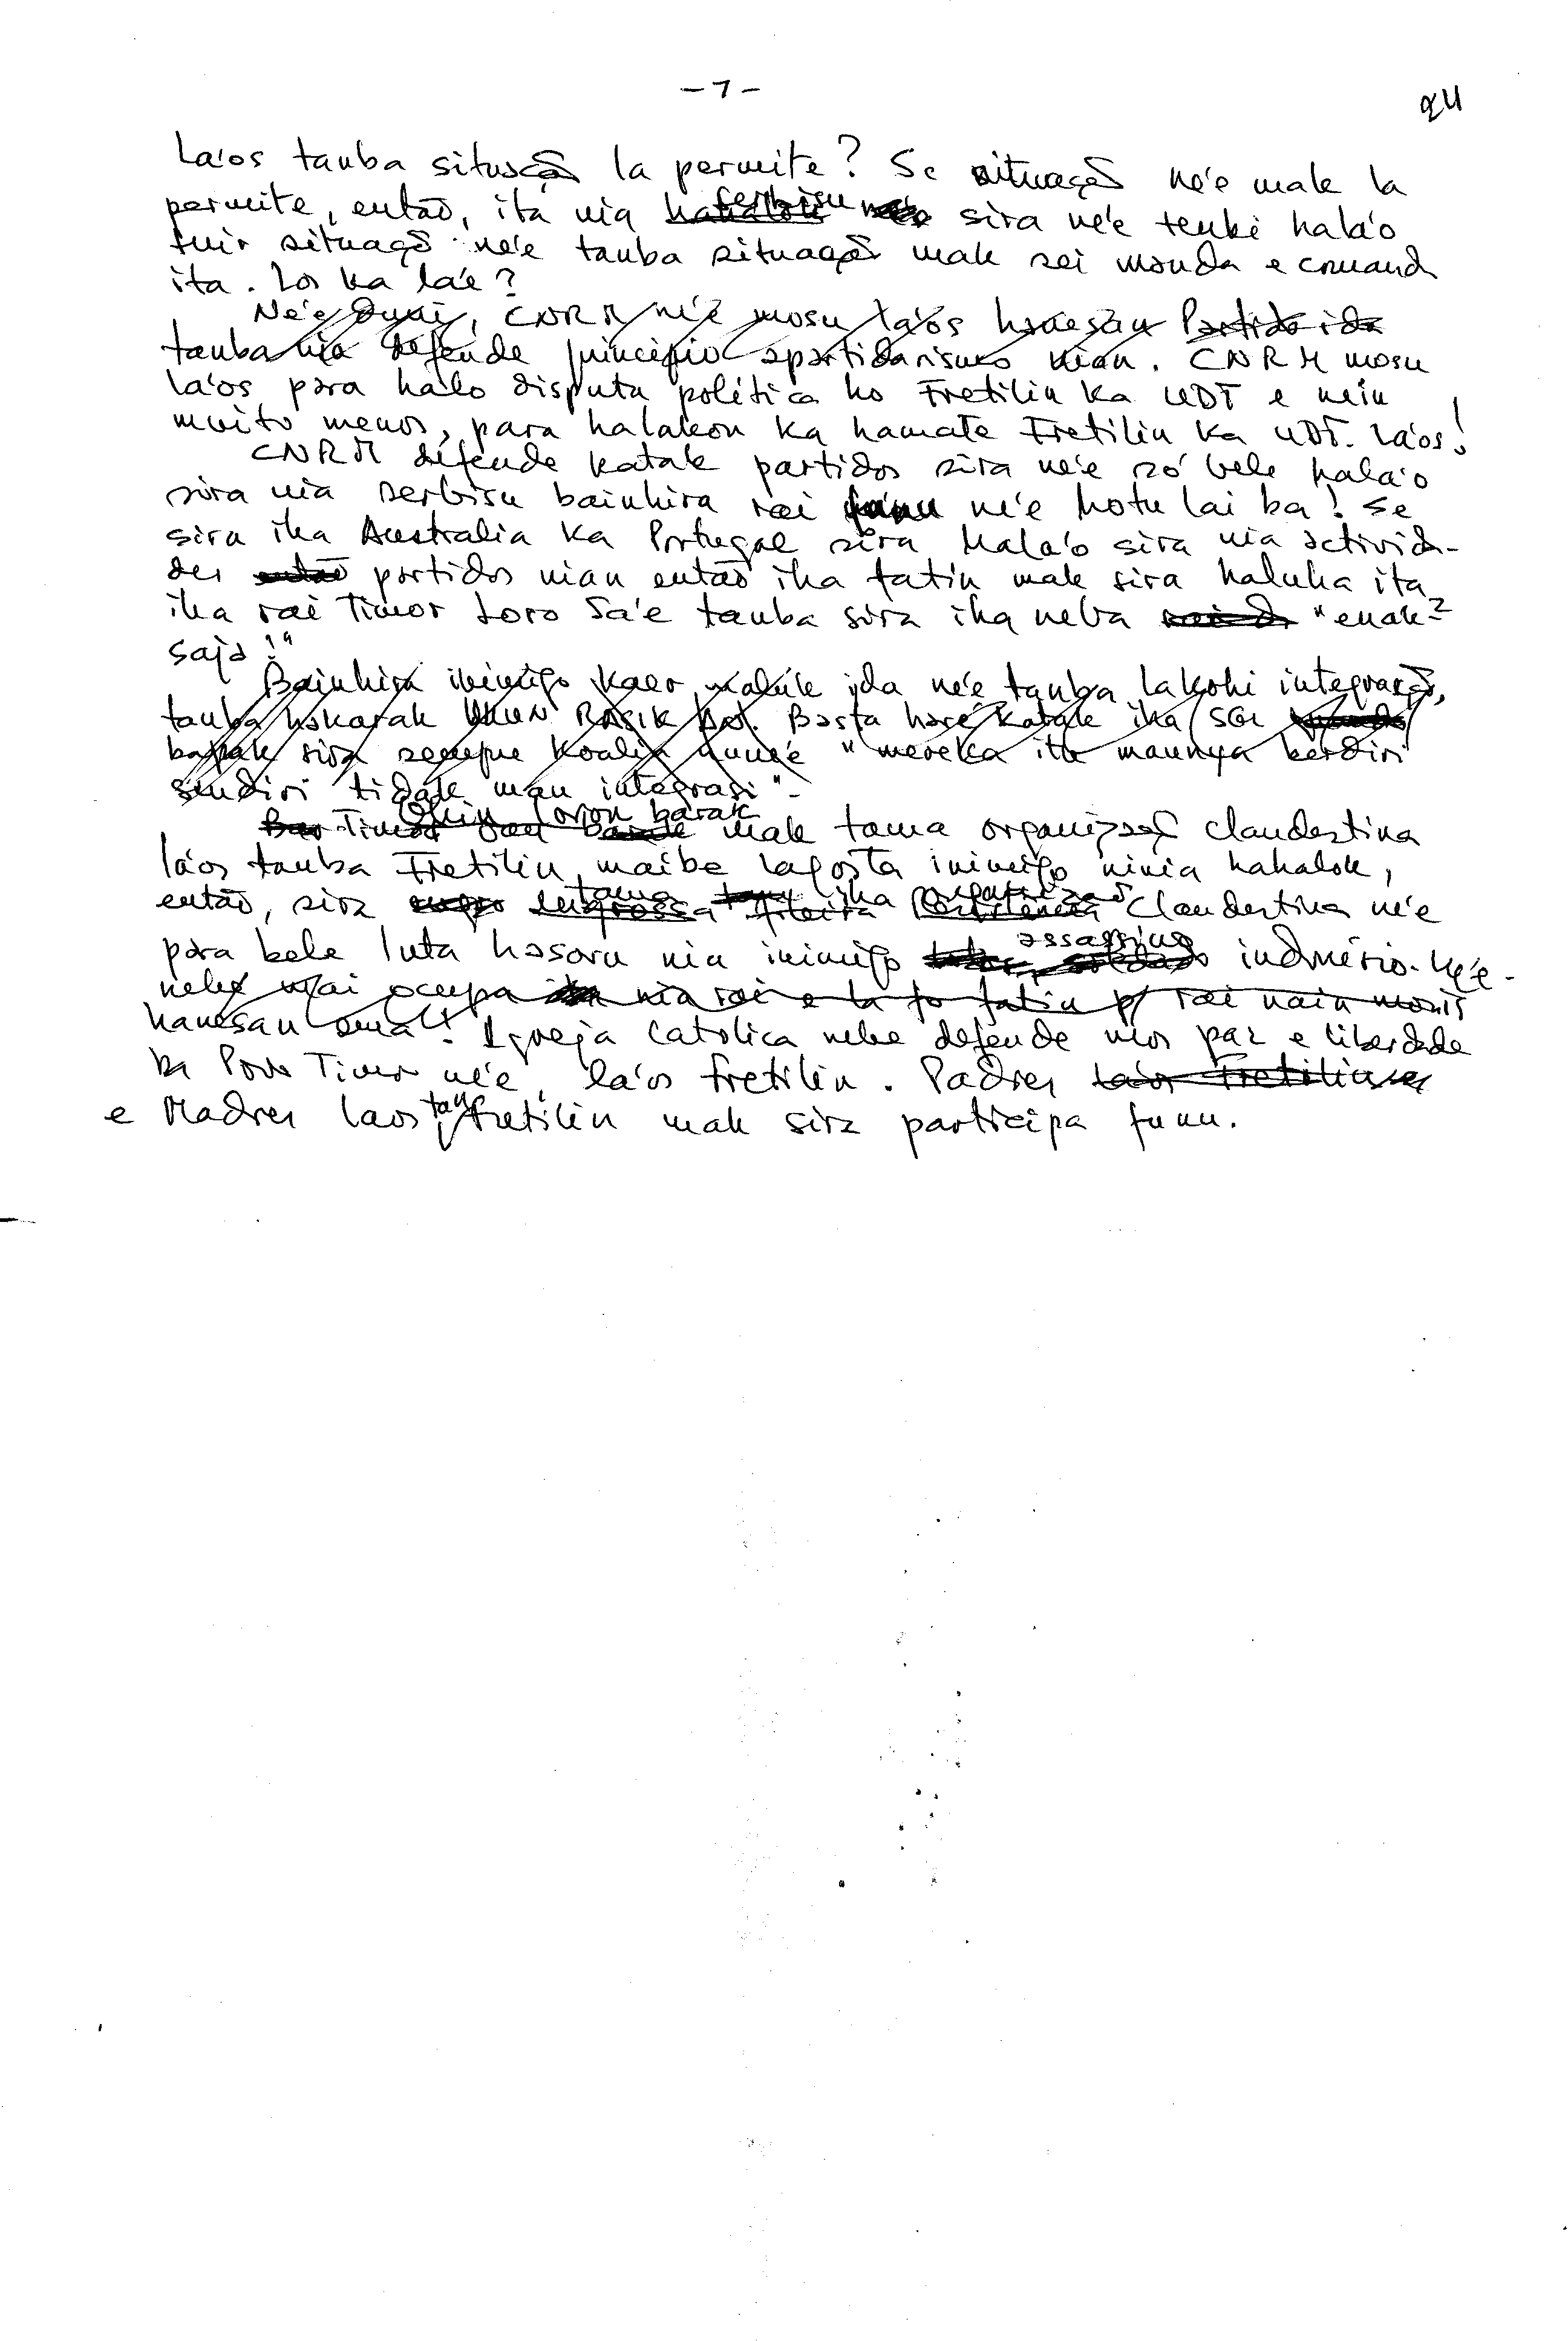 - 7 -
24
La'os tanba situação la permite? Se situação ne'e mak la
permite, então, ita nia hahalok serbisu sira ne'e tenki hala'o
tuir situação ne'e tanba situação mak sei manda e comanda
ita. Los ka la'e?
Ne'e duni, CNRM ne'e mosu la'os hanesan Partido ida
tanba nia defende princípio apartidarismo nian. CNRM mosu
la'os para halo disputa política ho Fretilin ka UDT e nein
muito menos, para halakon ka hamate Fretilin ka UDT. La'os!
CNRM defende katak partidos sira ne'e só bele hala'o
sira nia serbisu bainhira rai funu ne'e hotu lai ba! Se
sira iha Australia ka Portugal sira hala'o sira nia activida-
des então partidos nian então iha fatin mak sira haluha ita
iha rai Timor Loro Sa'e tanba sira iha neba "enak2
saja!"
Bainhira inimigo kaer maluk ida ne'e tanba lakohi integração,
tanba hakarak UKUN RASIK AN. Basta haré katak iha SGI
bapak sira sempre koalia nune'e "mereka itu maunya berdiri
sendiri tidak mau integrasi".
Timor oan barak Ohin loron barak mak tama organização clandestina
la'os tanba Fretilin, maibe lagosta inimigo ninia hahalok,
então, sira engrossa tama iha fileira Resistencia organização Clandestina ne'e
para bele luta hasoru nia inimigo assassino indonésio. Ne'e
nebé mai ocupa nia rai e la fo fatin p/ rai nain moris
hanesan ema! Igreja Catolica nebe defende mos paz e liberdade
ba Povo Timor ne'e, la'os fretilin. Padres la'os Fretilin
e Madres laos tan fretilin mak sira participa funu.